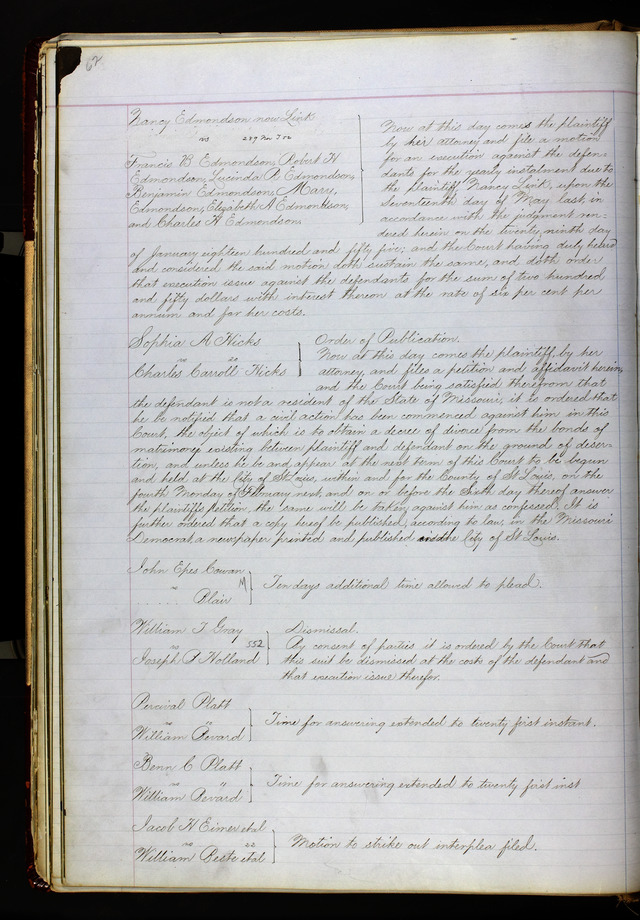 62
Nancy Edmondson now Link
vs 289 Nov T 52
Francis B Edmondson, Robert H
Edmondson, Lucinda P. Edmondson,
Benjamin Edmondson, Mary,
Edmondson, Elizabeth A Edmondson,
and Charles H Edmondson.
Now at this day comes the plaintiff
by her attorney and file a motion
for an execution against the defen-
dants for the yearly instalment due to
the plaintiff, Nancy Link, upon the
Seventeenth day of May last, in
accordance with the judgment ren-
dered herein on the twenty, ninth day
of January eighteen hundred and fifty five; and the Court having duly heard
and considered the said motion doth sustain the same, and doth order
that execution issue against the defendants for the sum of two hundred
and fifty dollars with interest thereon at the rate of six per cent per
annum and for her costs.
Sophia M Hicks
vs
Charles Carroll Hicks
Order of Publication.
Now at this day comes the plaintiff, by her
attorney, and files a petition and affidavit herein,
and the Court being satisfied therefrom that
the defendant is not a resident of the State of Missouri, it is ordered that
he be notified that a civil action has been commenced against him in this
Court, the object of which is to obtain a decree of divorce from the bonds of
matrimony existing between plaintiff and defendant on the ground of deser-
tion, and unless he be and appear at the next term of this Court to be begun
and held at the City of St Louis, within and for the County of St Louis, on the
fourth Monday of February next, and on or before the Sixth day thereof answer
the plaintiffs petition, the same will be taken against him as confessed. It is
further ordered that a copy hereof be published, according to law, in the Missouri
Democrat a newspaper printed and published in the City of St Louis.
John Epes Cowan
vs M
Blair
Ten days additional time allowed to plead.
William T Gray
vs 552
Joseph P Holland
Dismissal.
By consent of parties it is ordered by the Court that
this suit be dismissed at the costs of the defendant and
that execution issue therefor.
Percival Platt
vs
William Bevard
Time for answering extended to twenty first instant.
Benn C Platt
vs
William Bevard
Time for answering extended to twenty first inst
Jacob H Eimer etal
vs
William Beste etal
Motion to strike out interplea filed.